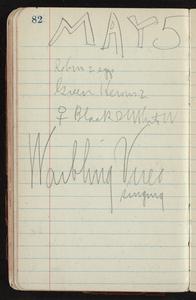 82
MAY 5
Robin 2 eggs
Green Heron 2
♀ Black & White W
Warbling Vireo
singing